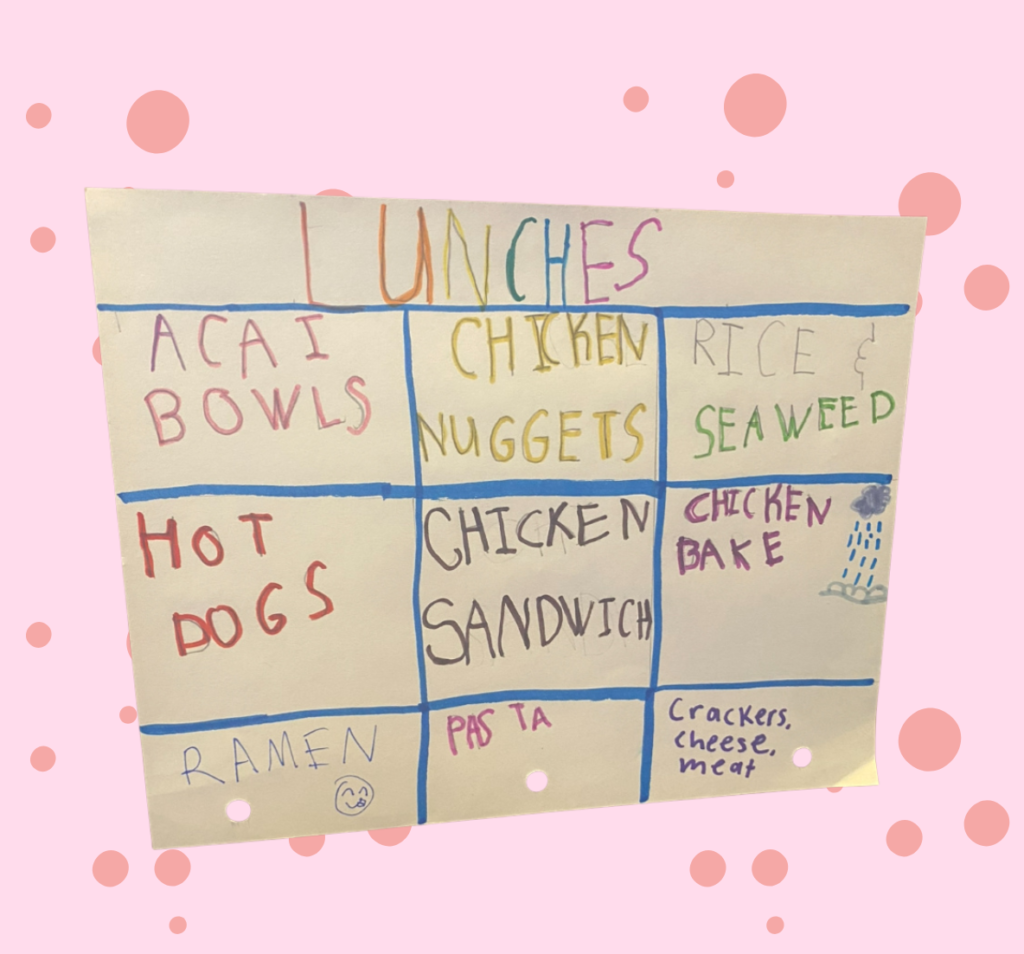 LUNCHES
ACAI
BOWLS
CHICKEN
NUGGETS
RICE &
SEAWEED
HOT
DOGS
CHICKEN
SANDWICH
CHICKEN
BAKE
RAMEN
PASTA
Crackers,
cheese,
meat